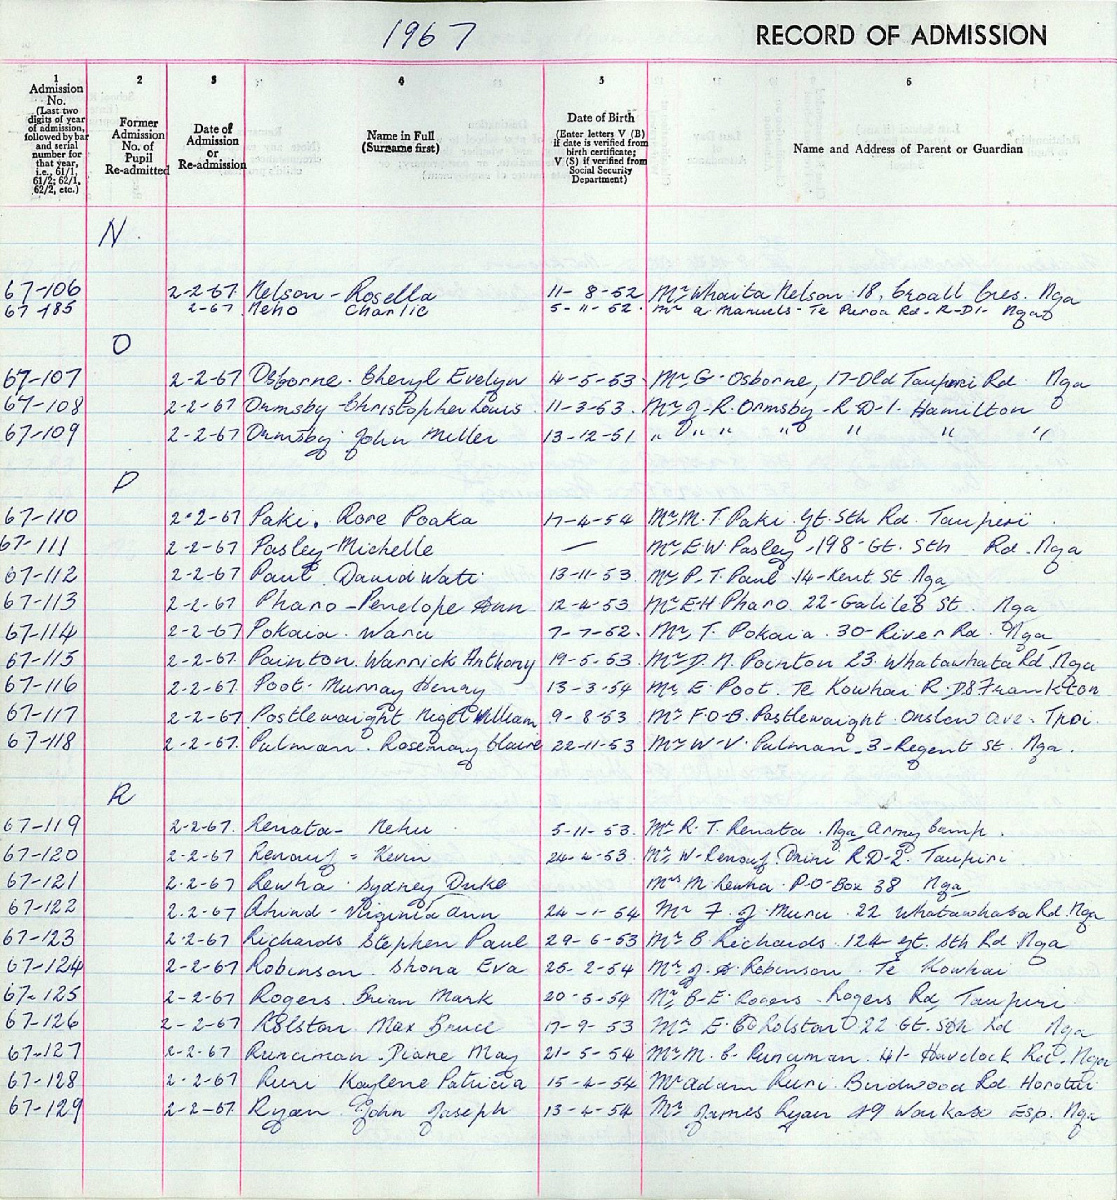 1967 RECORD OF ADMISSION
1 2 3 4 5 6
Admission No. (Last two digits of year of admission, followed by bar and serial number for that year, i.e., 61/1, 61/2; 62/1, 62/2, etc.)
Former Admission No. of Pupil Re-admitted
Date of Admission or Re-admission
Name in Full (Surname first)
Date of Birth (Enter letters V (B) if date is verified from birth certificate; V (S) if verified from Social Security Department)
Name and Address of Parent or Guardian
N.
67-106 2-2-67 Nelson - Rosella 11-8-52 Mr Whaita Nelson 18, Cres. Nga
67-185 2-67 Neho Charlie 5-11-52. Mr a Manuels - Te Puroa Rd - R-D1- Nga
O
67-107 2-2-67 Osborne. Cheryl Evelyn 4-5-53 Mr G- Osborne, 17-Old Taupiri Rd Nga
67-108 2-2-67 Ormsby Christopher Louis 11-3-53. Mr J-R. Ormsby - R-D-1- Hamilton
67-109 2-2-67 Ormsby John Miller 13-12-51 " " " " " " "
P
67-110 2-2-67 Paki. Rore Poaka 17-4-54 Mr M. T Paki. Gt. Sth Rd. Taupiri.
67-111 2-2-67 Pasley - Michelle — Mr E.W. Pasley -198-Gt. Sth Rd. Nga
67-112 2-2-67 Paul David Wati 13-11-53. Mr P. T. Paul 14-Kent St Nga
67-113 2-2-67 Pharo - Penelope Ann 12-4-53 Mr E-H Pharo 22-Galileo St. Nga
67-114 2-2-67 Pokaia. Waru 7-7-52. Mr T. Pokaia. 30-River Rd. Nga
67-115 2-2-67. Pointon. Warrick Anthony 19-5-53 Mr D. N. Pointon 23 Whatawhata Rd Nga
67-116 2-2-67 Poot- Murray Henry 13-3-54 Mr E. Poot. Te Kowhai R.D8 Frankton
67-117 2-2-67 Postlewaight Nigel William 9-8-53 Mr F.O.B. Postlewaight Onslow Ave.
67-118 2-2-67. Pulman. Rosemary Claire 22-11-53 Mr W-V. Pulman -3-Regent St. Nga.
R
67-119 2-2-67. Renata- Nehu 5-11-53. Mr R. T. Renata. Nga Army Camp.
67-120 2-2-67 Renouf = Kevin 24-4-53. Mr W- Renouf R.D-2. Taupiri
67-121 2-2-67 Rewha. Sydney Duke Mrs M Rewha. P-O-Box 38 Nga
67-122 2-2-67 Virginia Ann 24-1-54 Mr F. J. Muru. 22 Whatawhata Rd Nga
67-123 2-2-67 Richards Stephen Paul 29-6-53 Mr B Richards. 124 Gt. Sth Rd Nga
67-124 2-2-67 Robinson. Shona Eva 25-2-54 Mr J. Robinson. Te Kowhai
67-125 2-2-67 Rogers. Brian Mark 20-5-54 Mr B-E. Rogers. Rogers Rd, Taupiri
67-126 2-2-67 Rolston. Max Bruce 17-9-53 Mr E. Rolston 22 Gt. Sth Rd Nga
67-127 2-2-67 Runciman - Diane May 21-5-54 Mr M. C- Runciman. 41- Havelock Rd. Nga
67-128 2-2-67 Ruri Kaylene Patricia 15-4-54 Mr Adam Ruri. Birdwood Rd. Horotiu
67-129 2-2-67 Ryan. John Joseph 13-4-54 Mr James Ryan 49 Waikato Esp. Nga